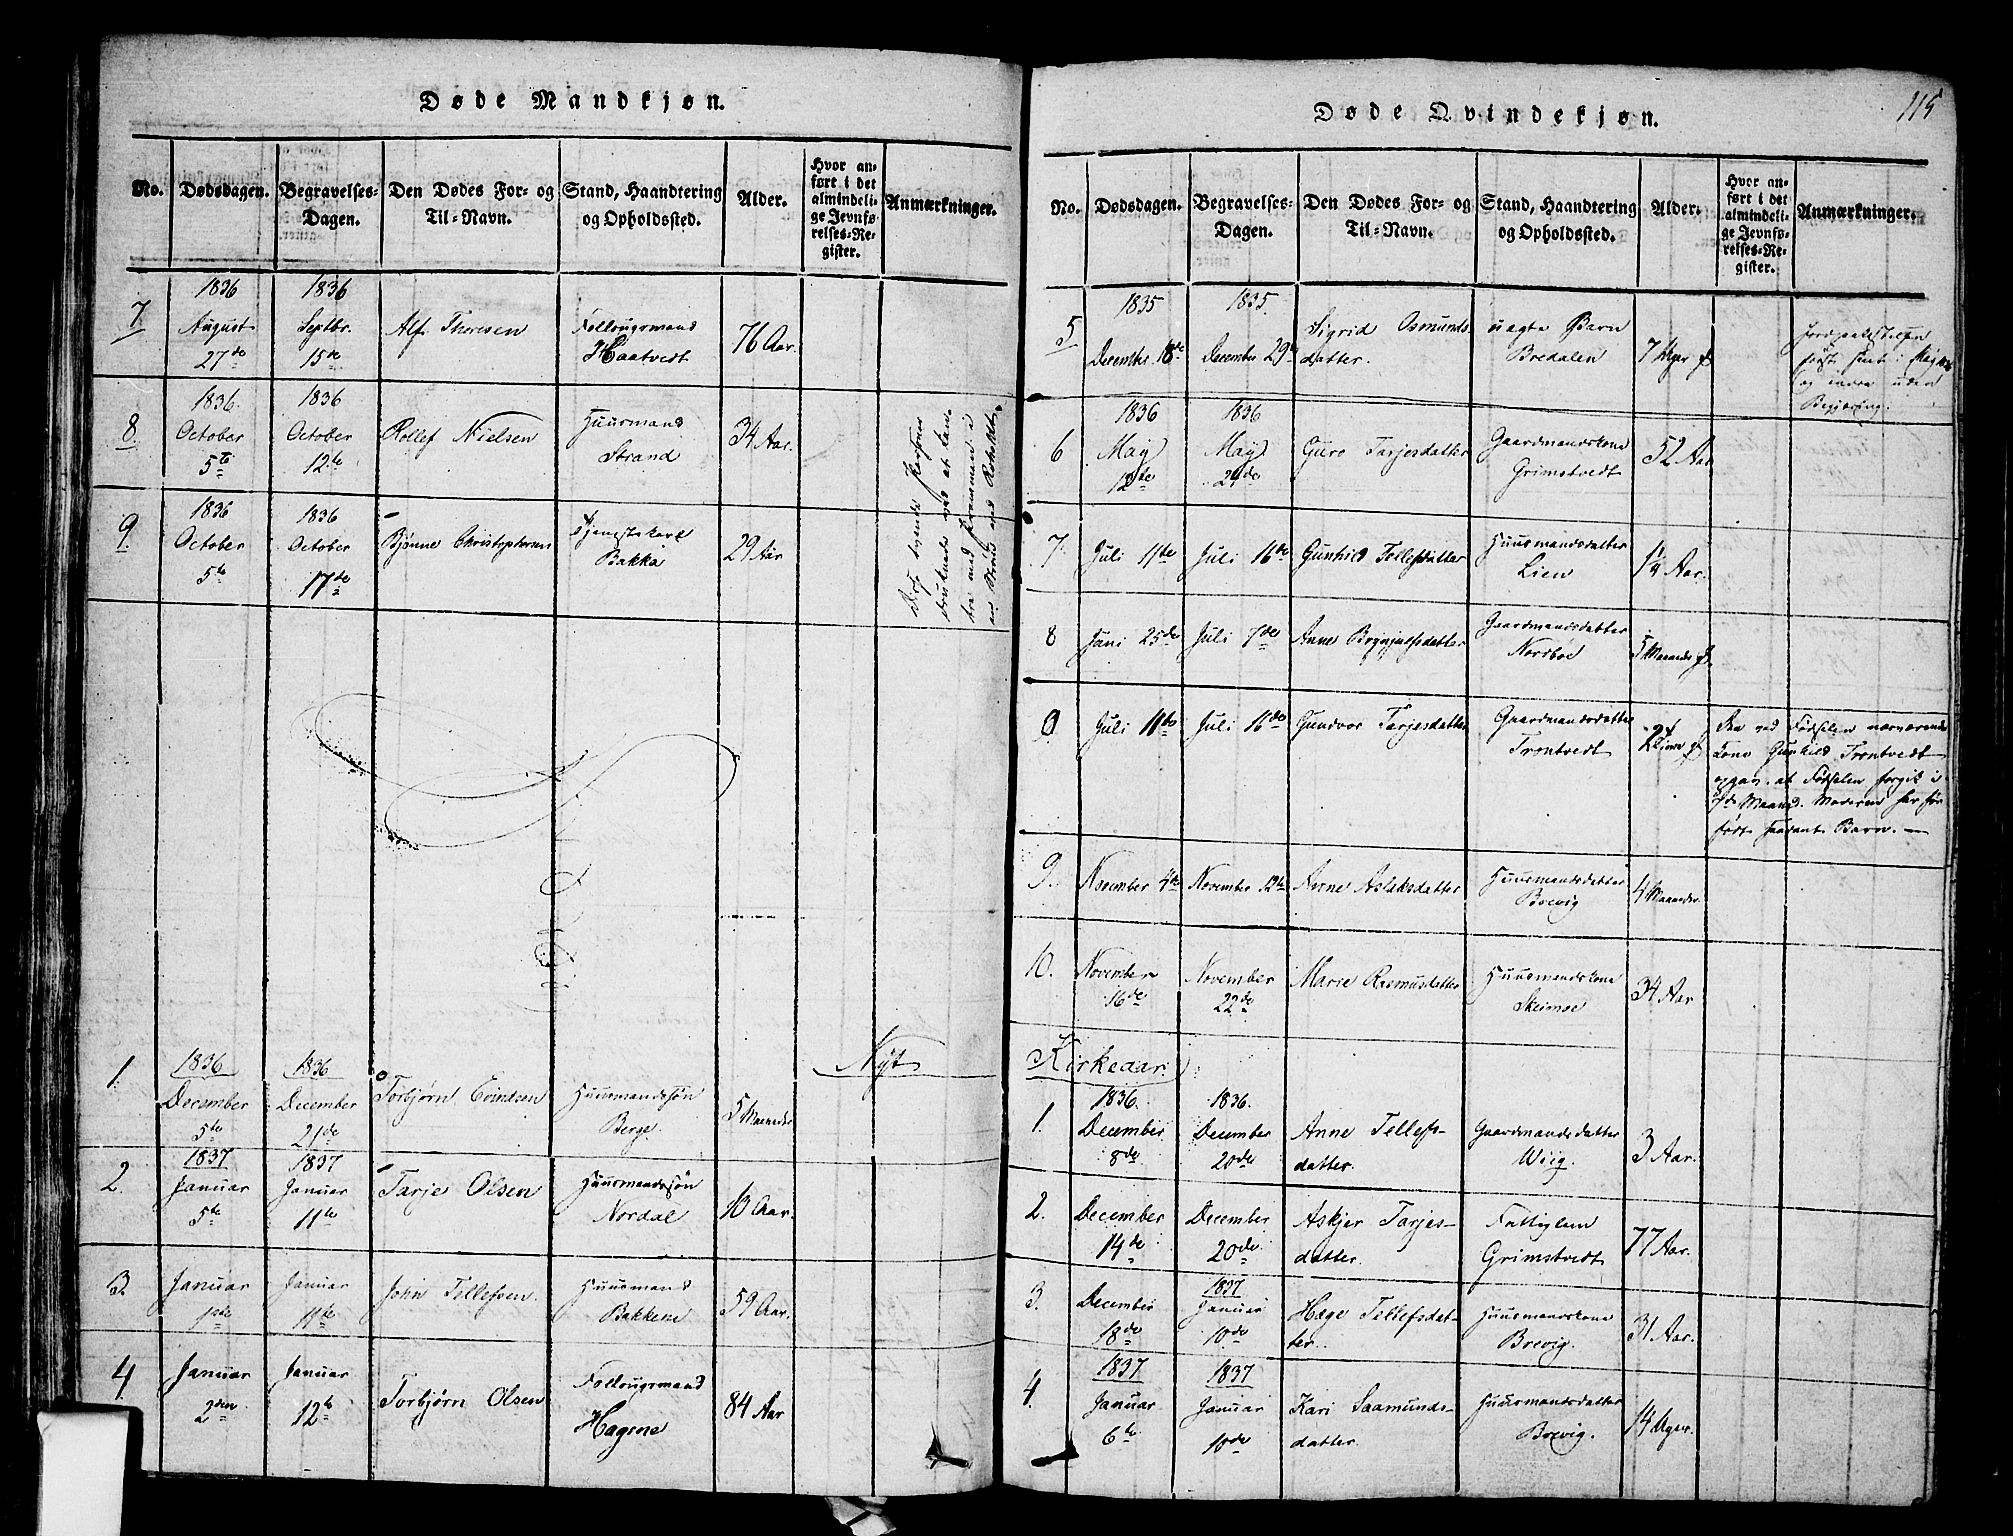 Døde Mandkjøn.
No.
Dødsdagen.
Begravelses-
Dagen.
Den Dødes For- og
Til-Navn.
Stand, Haandtering
og Opholdssted.
Alder.
Hvor an-
ført i det
almindeli-
ge Jevnfø-
relses-Re-
gister.
Anmærkninger.
7
1836
August
27de
1836
Septbr.
15de
Alf Thoresen
Follougsmand
Haatvedt
76 Aar.
8.
1836.
October
5te
1836
October
12te
Rollef Nielsen
Huusmand
Strand
34 Aar.
9.
1836
October
5te
1836
October
17de
Bjønne Christophersen
Tjenestekarl
Bakka
29 Aar
Disse tvende Personer
druknede ved at
1.
1836
December
5te
1836
December
21de
Torbjørn Evindsen
Huusmandssøn
Berge.
5 Maaneder
Nyt
2.
1837
Januar
5te
1837
Januar
11te
Tarje Olsen
Huusmandssøn
Nordal
10 Aar.
3
Januar
1ste
Januar
11te
John Tellefsen.
Huusmand
Bakkene
59 Aar.
4
Januar
2den
Januar
12te
Torbjørn Olsen
Follougsmand
Hagene
84 Aar
115
Døde Qvindekjøn.
No.
Dødsdagen.
Begravelses-
Dagen.
Den Dødes For- og
Til-Navn.
Stand, Haandtering
og Opholdssted.
Alder.
Hvor an-
ført i det
almindeli-
ge Jevnfø-
relses-Re-
gister.
Anmærkninger.
5
1835
December 18de
1835.
December 29de
Sigrid Osmunds
datter.
uægte Barn
Bredalen
7 Uger
6
1836
May
12te
1836
May
24de
Guro Tarjesdatter
Gaardmandskone
Grimstvedt
52 Aar
7.
Juli 11te
Juli 16de
Gunhild Tellefsdatter
Huusmandsdatter
Lien
1¼ Aar.
8
Juni 25de
Juli 7de
Anne Brynjulfsdatter
Gaardmandsdatter
Nordboe
5 Maaneder
0
Juli 11te
Juli 16de
Gundvor Tarjesdatter
Gaardmandsdatter
Trontvedt
Den ved Fødselen nærværende
Kone Gunhild Trontvedt
opgav, at Fødselen forgik i
7de Maaned. Moderen har før
født saadant Barn. —
9.
November 4de
November 12te
Anne Aslaksdatter
Huusmandsdatter
Brevig
4 Maaneder
10.
November
16de
November
22de
Marie Rasmusdatter
Huusmandskone
Skeimoe
34 Aar
Kirkeaar.
1.
1836.
December
8de
1836.
December
20de
Anne Tellefs-
datter.
Gaardmandsdatter
Wiig.
3 Aar.
2.
December
14de
December
20de
Askjer Tarjes-
datter.
Fattiglem
Grimstvedt
77 Aar.
3.
December
18de
1837
Januar
10de
Hæge Tellefsdat-
ter.
Huusmandskone
Brevig.
31 Aar.
4.
1837
Januar
6te
1837
Januar
10de
Kari Saamunds-
datter.
Huusmandsdatter
Brevig.
14 Uger.